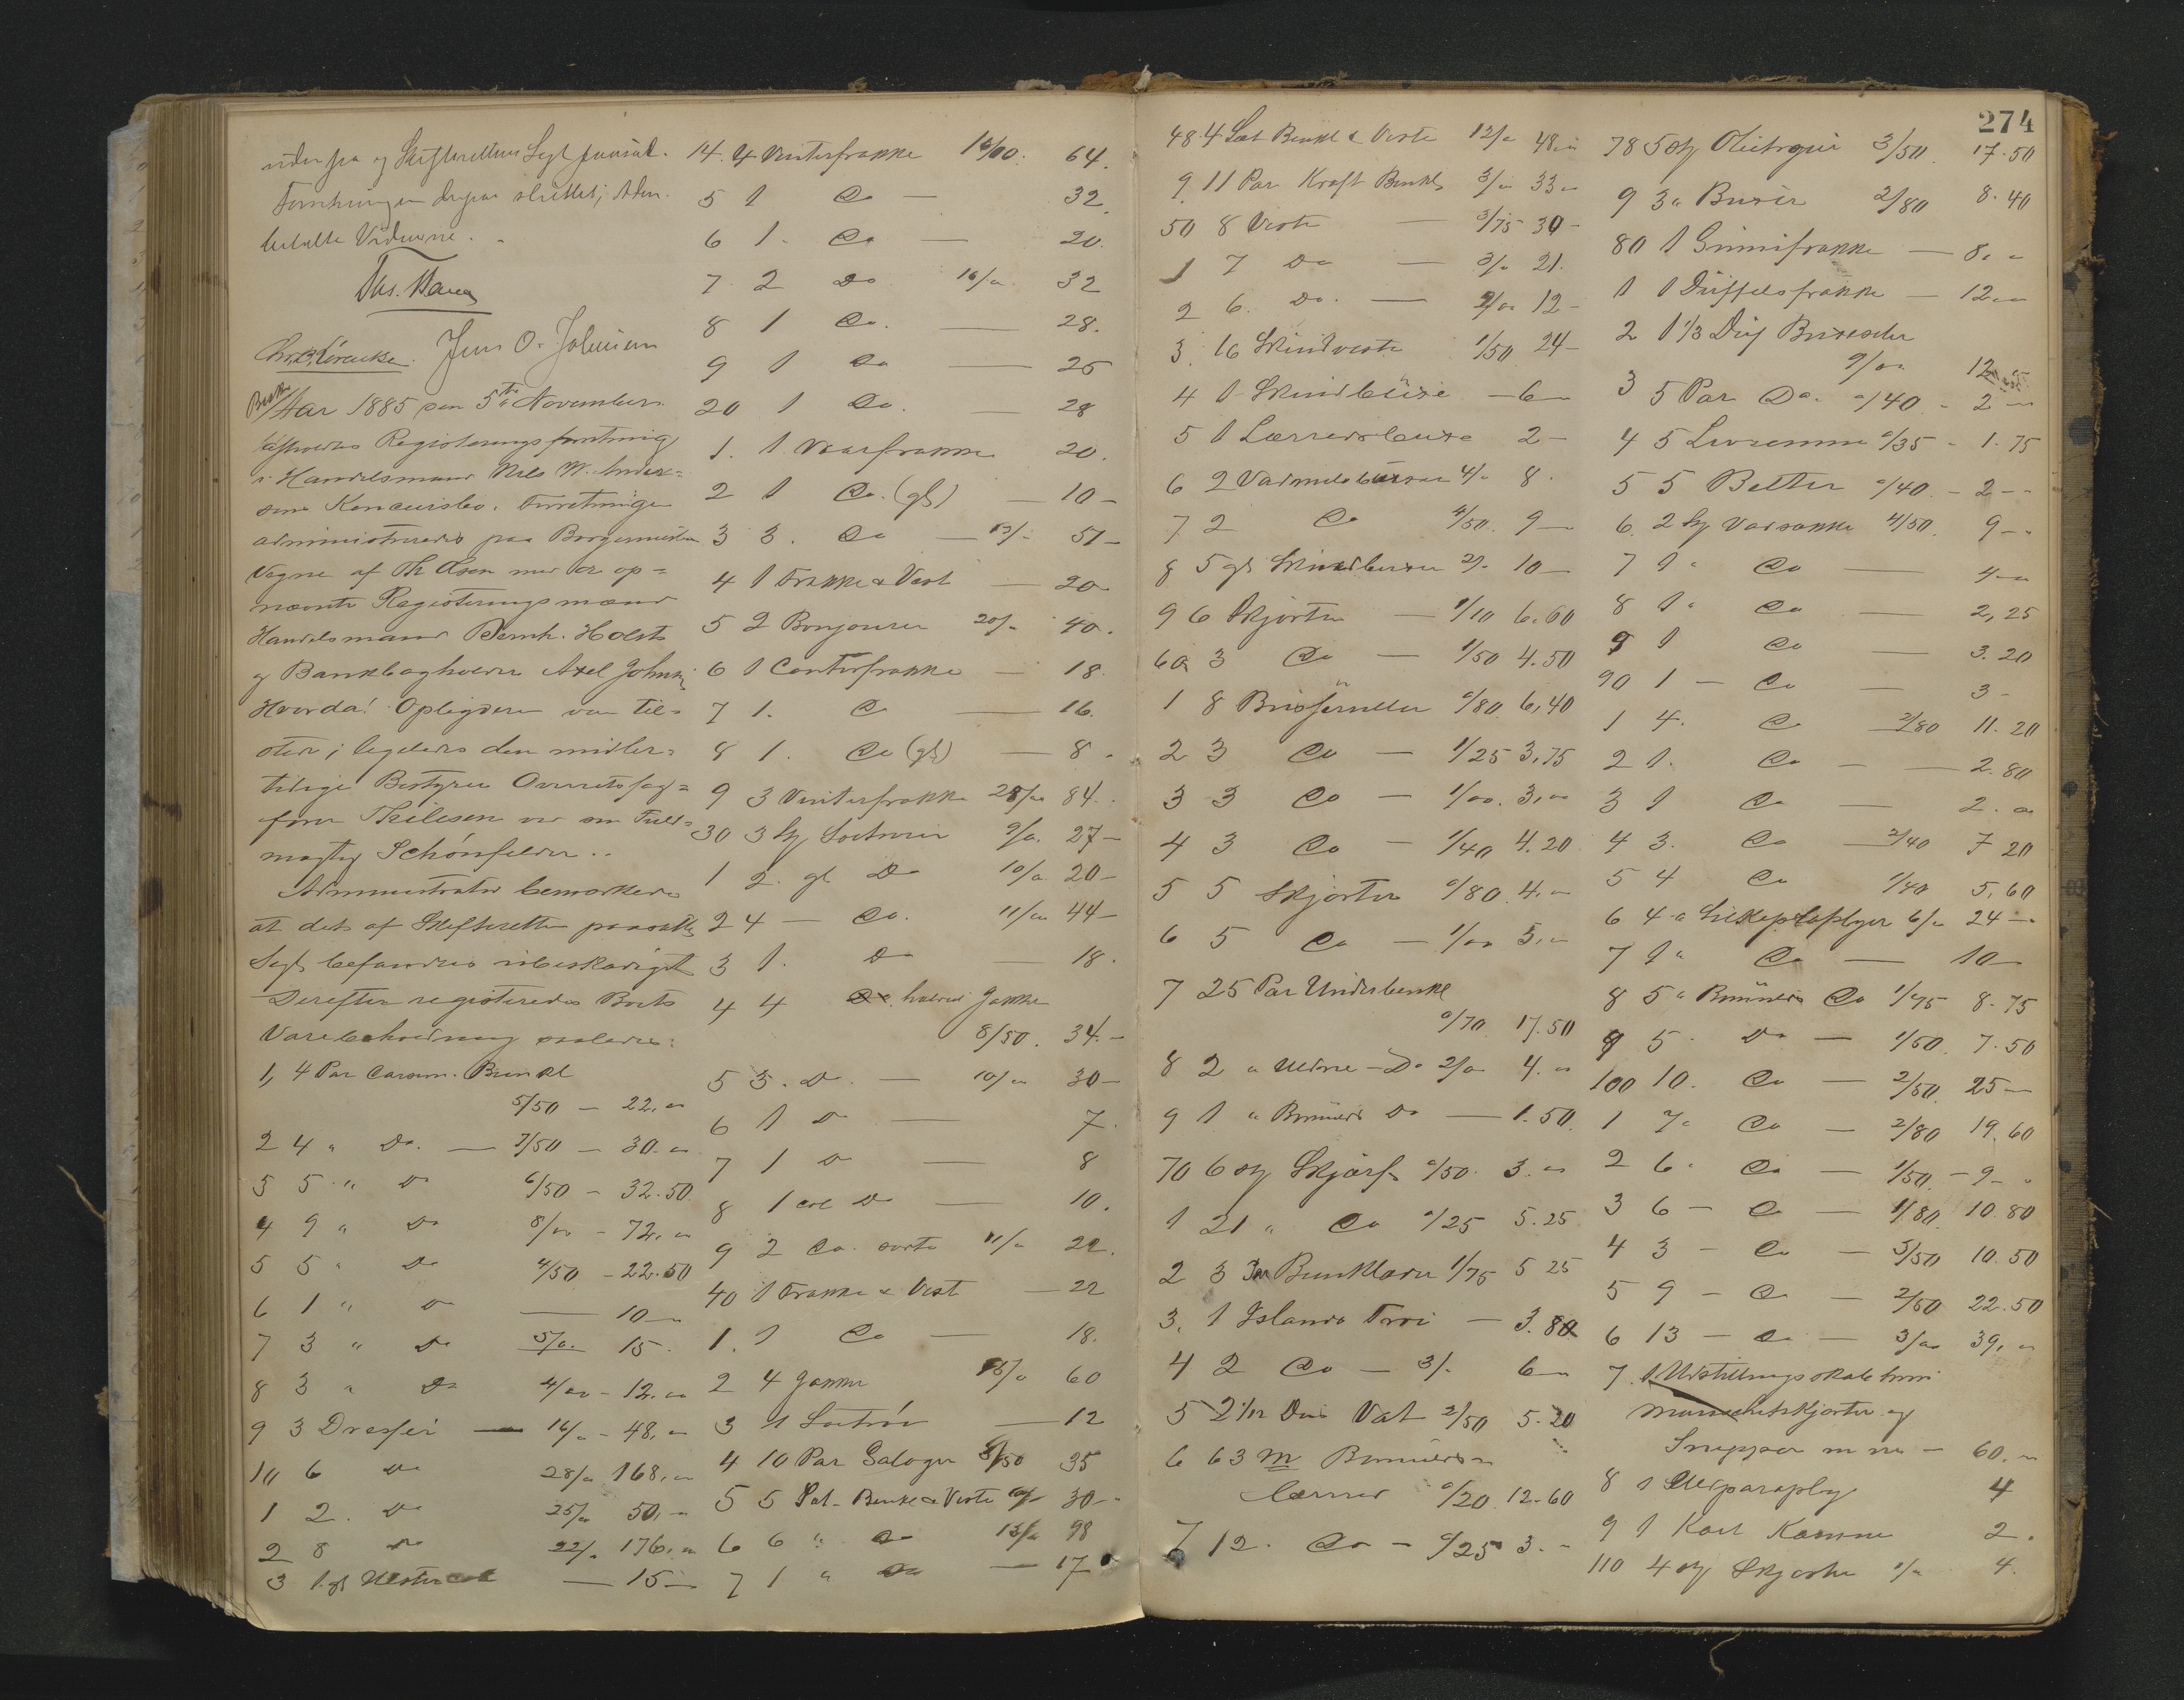 og Skifterettens Segl
Forretningen derpaa sluttet; Aden.
befalte Vidnerne.
Jens O. Johnsen
Aar 1885 den 5te November
afholdtes Registeringsforretning
i Handelsmand Nils W. Ander=
sens Koncursbo. Forretningen
administreredes paa Borgermester
Vegne af Th Olsen med de op=
nævnte Registeringsmænd
Handelsmand Bernh. Holst
og Bankbogholder Axel Johnsen
Hvorda! Opbyderen var til=
stede; ligeledes den midler=
tidige Bestyrer Overretssag=
fører Thilesen ved sin Fuld=
mægtig Schónfelder..
Administrator bemærkede
at det af Skifteretten paasatte
Segl befandtes ubeskadiget
Derefter registeredes Boets
Varebeholdning saaledes:
1, 4 Par Benkl
5/50 — 22. "
2 4 " Do. — 7/50 — 30. "
3 5 " Do 6/50 — 32.50
4 9 " Do 8/" — 72, "
5 5 " Do 4/50 — 22.50
6 1 " Do — 10 —
7 3 " Do 5/" 15.
8 3 " Do 4/" — 12. "
9 3 Dresser — 16/" — 48, "
10 6 Do 28/" 168, "
1 2. Do 25/" 50, "
2 8 Do 22/" 176, "
3 1 gl Ulster — 15 —
14. 4 Vinterfrakke 16/00. 64.
5 1 Do — 32.
6 1. Do — 20.
7 2 Do 16/" 32
8 1 Do. — 28.
9 1 Do — 25
20 1 Do. — 28
1. 1 Vaarfrakke 20.
2 1 Do. (gl) — 10 —
3 3. Do — 17/" 51 —
4 1 Frakke & Vest — 20
5 2 Bonjourer 20/" 40.
6 1 Contorfrakke — 18
7 1. Do — 16.
8 1. Do (gl) — 8.
9 3 Vinterfrakke 28/" 84.
30 3 Stk 9/" 27 —
1 2 gl Do 10/" 20 —
2 4 — Do. 11/" 44 —
3 1. Do — 18.
4 4 Do. Jakke
8/50. 34. —
5 3. Do. — 10/" 30 —
6 1 Do — 7.
7 1 Do — 8
8 1 Do — 10.
9 2 Do. sorte 11/" 22.
40 1 Frakke & Vest — 22
1. 1 Do — 18.
2 4 Jakker 15/" 60
3 1 — 12
4 10 Par Galoger 3/50 35
5 5 Set. Benkl & Veste 6/" 30 —
6 6 " Do 98
7 1 " Do — 17
274
48 4 Sæt Benkl & Veste 12/" 48, "
9. 11 Par Kraft Benkl 3/" 33 "
50 8 Veste — 3/75 30 —
1 7 Do — 3/" 21.
2 6. Do. — 2/00 12 —
3. 16 Skindveste 1/50 24 —
4 1 Skindbuxe — 6 —
5 1 Lærredsbuxe 2 —
6 2 Vadmelsbuxer 4/" 8.
7 2 Do 4/50. 9 —
8 5 gl Skindbuxer 2/" 10 —
9 6 Skjorter — 1/10 6.60
60 3 Do — 1/50 4.50
1 8 Busseruller "/80 6,40
2 3 Do — 1/25 3,75
3 3 Do — 1/00. 3, "
4 3 Do — 1/40 4.20
5 5 Skjorter "/80 4. "
6 5 Do — 1/00 5, "
7 25 Par Underbenkl
"/70 17.50
8 2 " Uldne — Do 2/" 4. "
9 1 " Bomulds Do — 1.50.
70 6 stk Skjærf "/50. 3. "
1 21 " Do "/25 5.25
2 3 Par Benklæder 1/75 5 25
3. 1 Islands Trøi — 3.80
4 2 Do — 3/" 6 —
5 2 1/12 Dus Vat 2/50 5.20
6 63 m Bomulds
lærred "/20 12.60
7 12. Do — "/25 3. "
78 5 stk 3/50 17.50
9 3 " Buxer 2/80 8.40
80 1 Gumifrakke — 8. "
1 1 Düffelsfrakke — 12 "
2 1 1/3 9/" 12
3 5 Par Do. "/40 — 2 —
4 5 Livremme "/35 — 1.75
5 5 Belter "/40 — 2 —
6. 2 Stk Vadsække 4/50. 9 —
7 1 " Do — 4 —
8 1 " Do — 2,25
9 1 Do — 3.20
90 1 — Do — 3 —
1 4. Do — 2/80 11.20
2 1. Do — 2.80
3 1 Do — 2. "
4 3. Do — 2/40 7 20
5 4 Do 1/40 5,60
6 4 " Silkeparaplyer 6/" 24 —
7 1 " Do — 10 —
8 5 " Bomulds Do 1/75 8.75
9 5 " Do — 1/50. 7.50
100 10. Do — 2/50. 25 —
1 7 " Do — 2/80 19.60
2 6 " Do — 1/50. — 9 —
3 6 — Do — 1/80. 10.80
4 3 — Do — 3/50 10.50
5 9 — Do — 2/50 22.50
6 13 — Do — 3/00 39, "
7. 1 Udstillingsskab hvori
Manschetskjorter og
m m — 60, "
8 1 4
9 1 Kart Kamme 2.
110 4 stk Skjorter 1/" 4.